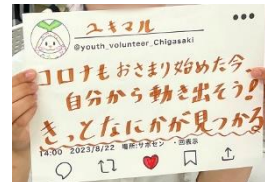 ユキマル
@youth_volunteer_Chigasaki
コロナもおさまり始めた今
自分から動き出そう!
きっとなにかが見つかる
14:00 2023/8/22 場所:サポセン ・回表示